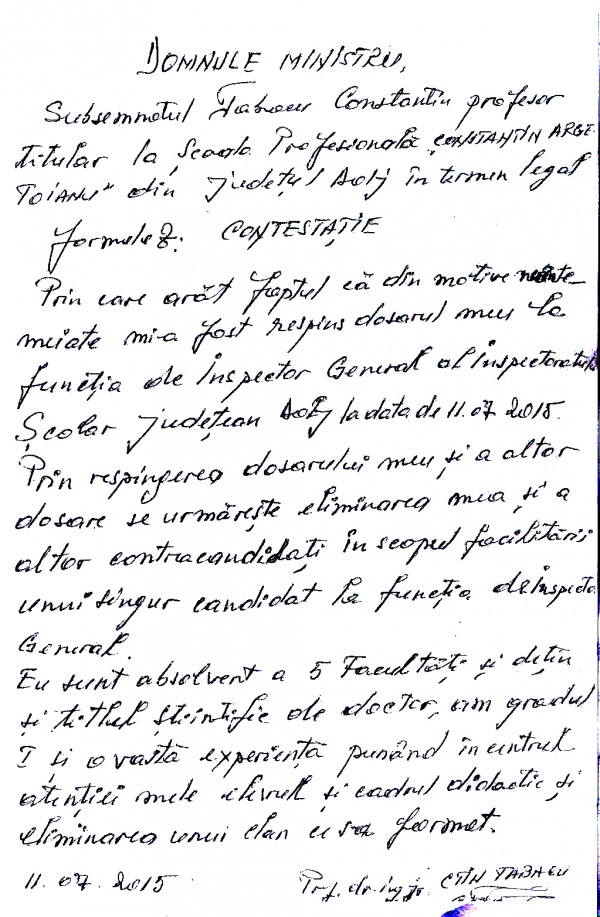 DOMNULE MINISTRU,
Subsemnatul Tabacu Constantin profesor
titular la Școala Profesională „CONSTANTIN ARGE-
TOIANU" din județul Dolj în termen legal
formulez: CONTESTAȚIE
Prin care arăt faptul că din motive neînte-
meiate mi-a fost respins dosarul meu la
funcția de Inspector General al Inspectoratului
Școlar Județean Dolj la data de 11.07 2015.
Prin respingerea dosarului meu și a altor
dosare se urmărește eliminarea mea și a
altor contracandidați în scopul facilitării
unui singur candidat la funcția de Inspector
General.
Eu sunt absolvent a 5 Facultăți și dețin
și titlul științific de doctor, am gradul
I și o vastă experiență punând în centrul
atenției mele elevul și cadrul didactic și
eliminarea unui clan ce s-a format.
11.07.2015 Prof. dr. ing. jr. CTIN TABACU